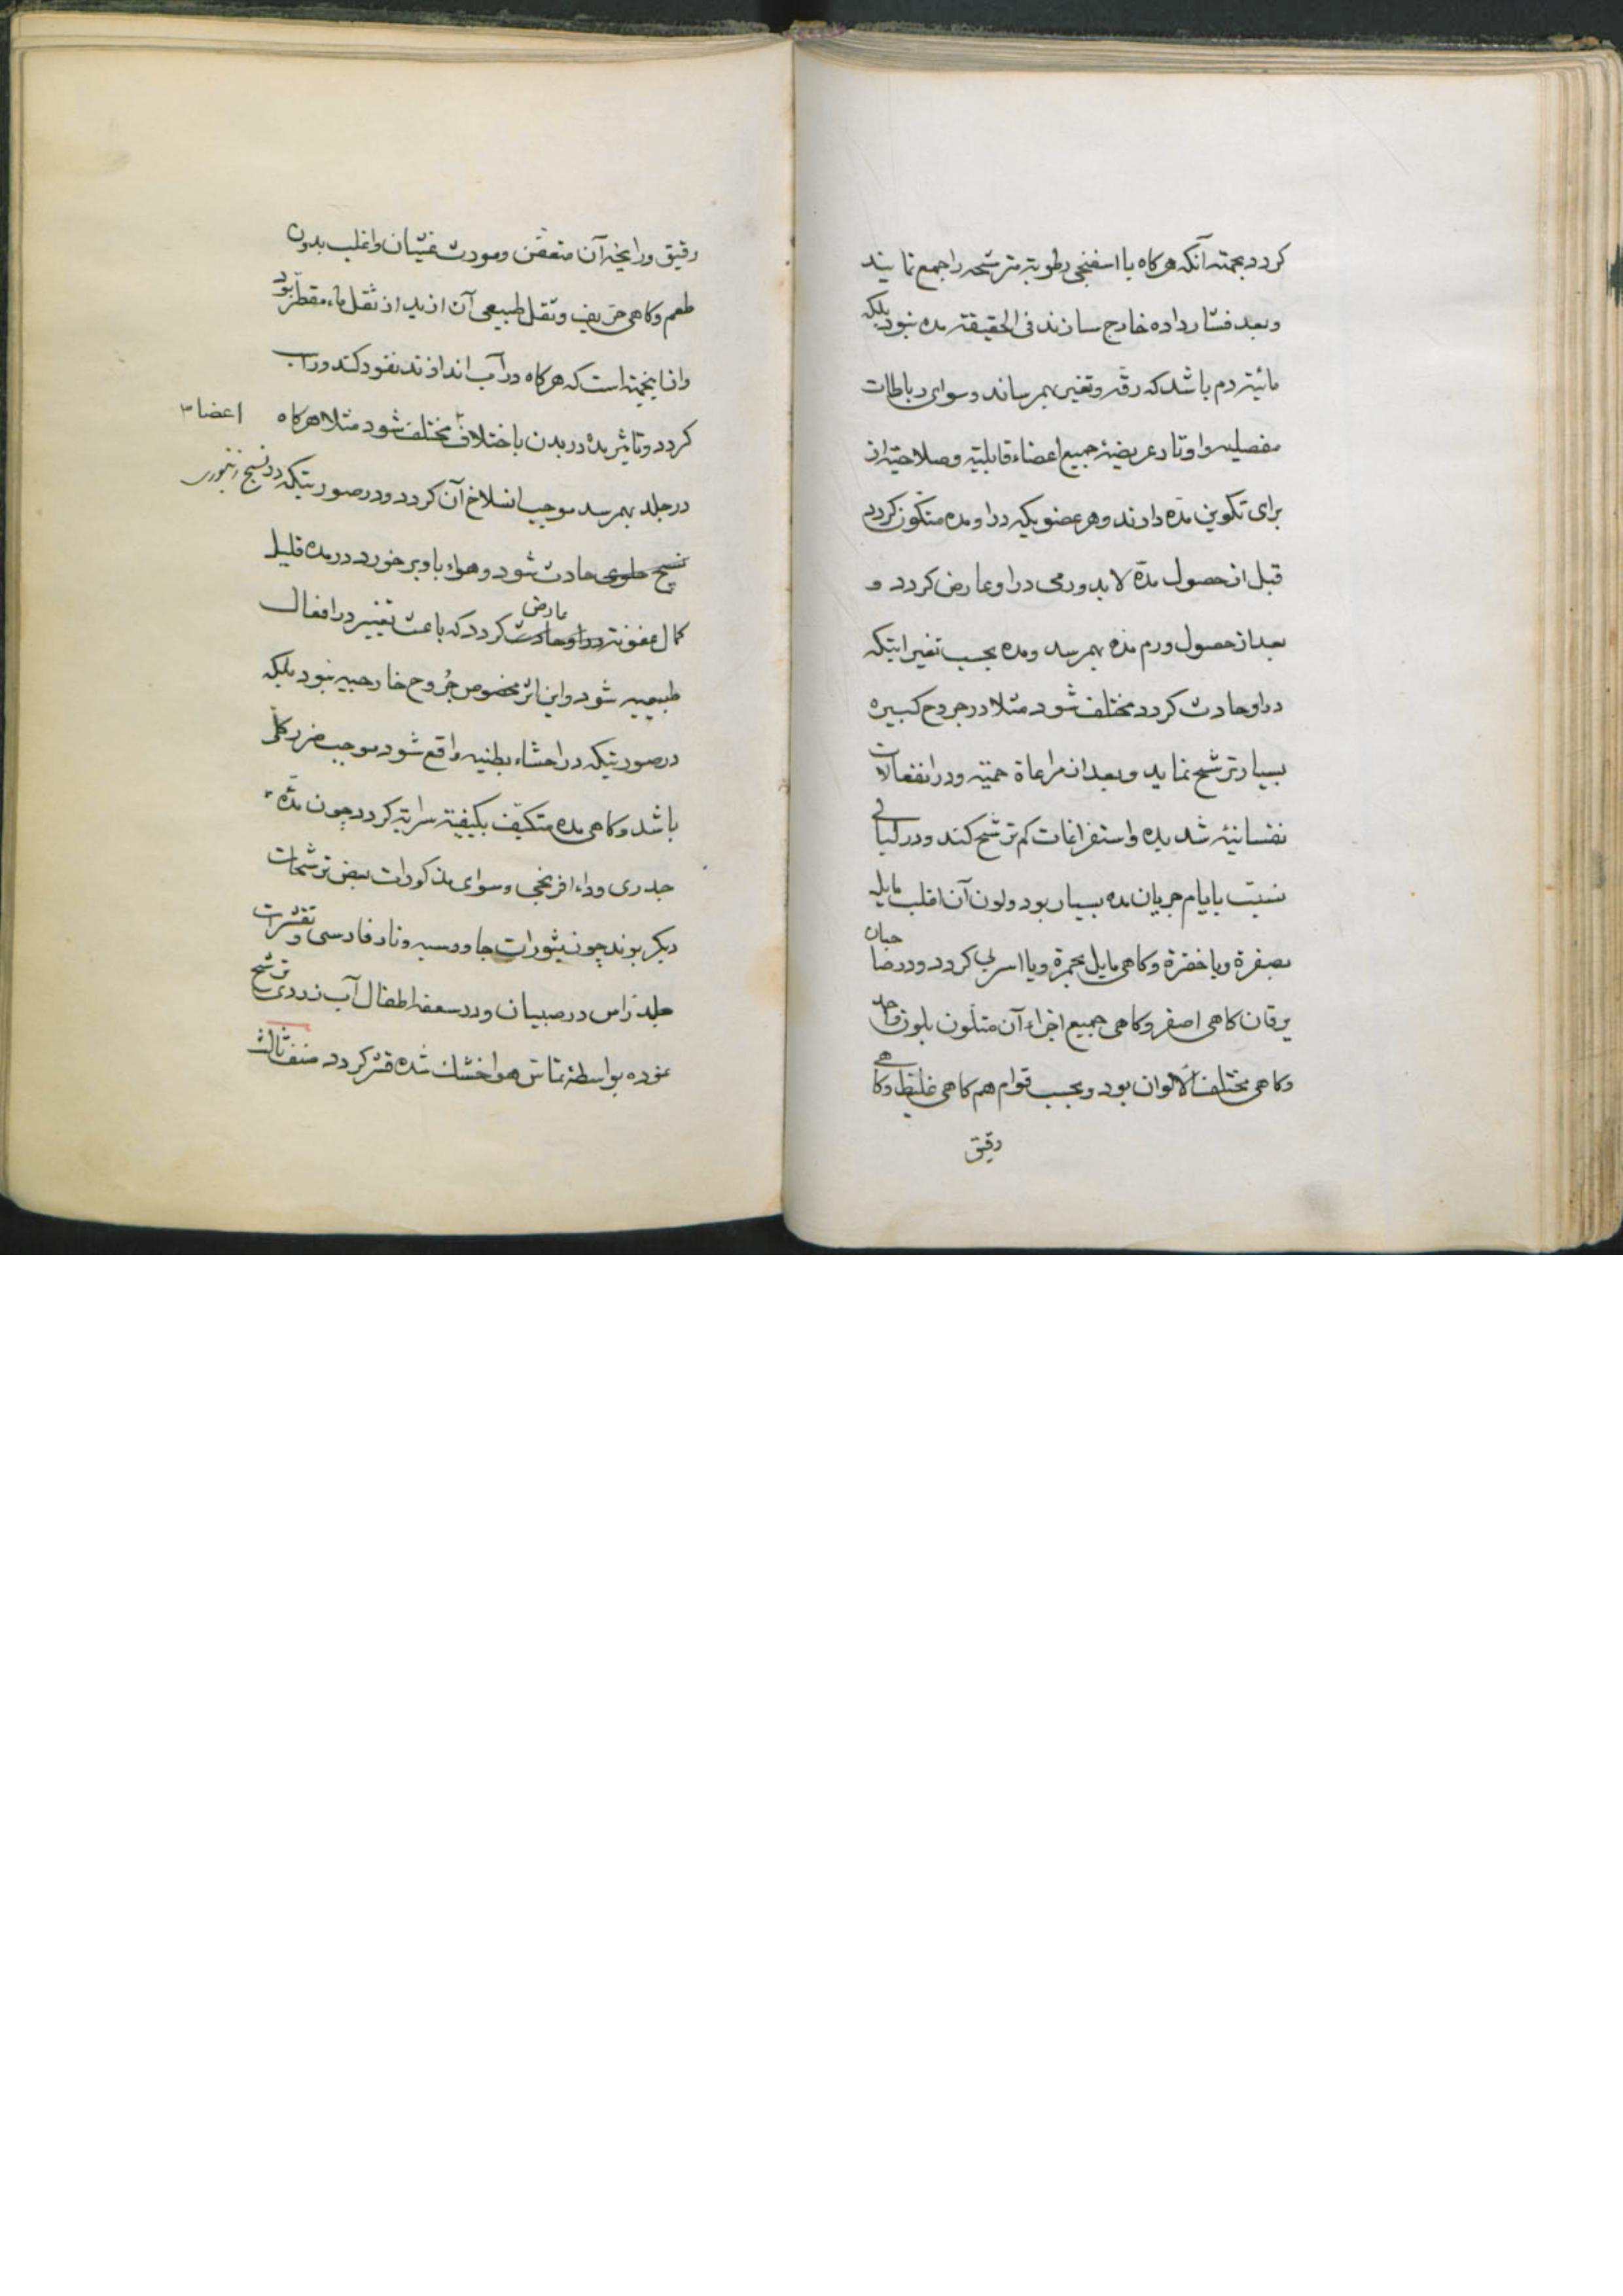 کردد بجهته آنکه هرکاه با اسفنجی رطوبته مترشحه را جمع نمایند
وبعد فشار داده خارج سازند فی الحقیقته مده نبود بلکه
مائیته دم باشد که رقه وتغیر بهمرساند وسوای رباطات
مفصلیه واوتاد عریضهٔ جمیع اعضاء قابلیته وصلاحیته از
برای تکوین مدّه دارند وهر عضویکه در او مده متکوّن کردد
قبل از حصول مدّه لابد ورمی در او عارض کردد و
بعد از حصول ورم مده بهمرسد ومده بحسب تغیراتیکه
در او حادث کردد مختلف شود مثلا در جروح کبیره
بسیار ترشح نماید وبعد از مراعاة حمیّه ودر انفعالات
نفسانیهٔ شدیده واستفراغات کم ترشح کند ودر لیالی
نسبت بایام جریان مده بسیار بود ولون آن اغلب مایل
بصفرة ویا خضرة وکاهی مایل بحمرة ویا اسربی کردد ودر صاحبان
یرقان کاهی اصفر وکاهی جمیع اجزاء آن متلوّن بلون واحد
وکاهی مختلف الالوان بود وبحسب قوام هم کاهی غلیظ وکاهی
رقیق
رقیق ورایحهٔ آن متعفن ومورث غثیان واغلب بدون
طعم وکاهی حریف وثقل طبیعی آن ازید از ثقل ماء مقطر بود
واز اینجهته است که هرکاه در آب اندازند نفود کند در آب
کردد وتاثیر مده در بدن باختلاف مختلف شود مثلا هرکاه
اعضا
در جلد بهمرسد موجب انسلاخ آن کردد ودر صورتیکه در نسج
نسج خلوی حادث شود وهواء باو برخورد در مده قلیل
کمال عفونته در او حادث کردد که باعث تغییر در افعال
عارض
طبیعیه شود واین اثر مخصوص جُروح خارجیه نبود بلکه
در صورتیکه در احشاء بطنیه واقع شود موجب ضرر کلی
باشد وکاهی مده متکیّف بکیفیته سرایة کردد چون مدّه
جدری وداء افرنجی وسوای مذکورات بعض ترشحات
دیکر بوند چون بثورات جاورسیه ونار فارسی وتقشرات
جلد راس در صبیان ودر سعفه اطفال آب زردی ترشح
نموده بواسطهٔ تماس هوا خشک شده قشر کردد صنف ثالث